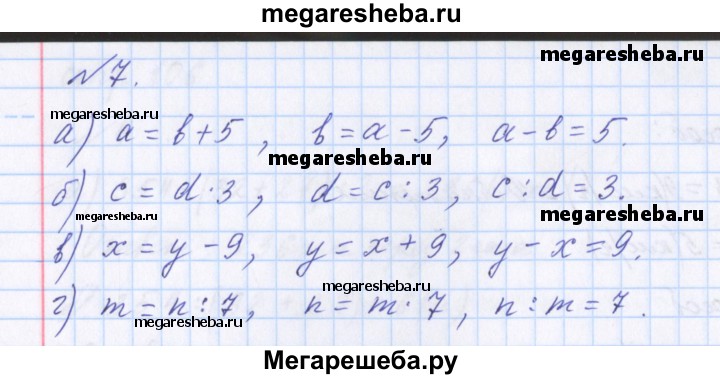 megaresheba.ru
megaresheba.ru
№7.
megaresheba.ru
а) a = b + 5, b = a - 5, a - b = 5.
megaresheba.ru
б) c = d · 3, d = c : 3, c : d = 3.
megaresheba.ru
megaresheba.ru
в) x = y - 9, y = x + 9, y - x = 9.
г) m = n : 7, n = m · 7, n : m = 7.
megaresheba.ru
megaresheba.ru
Мегарешеба.ру